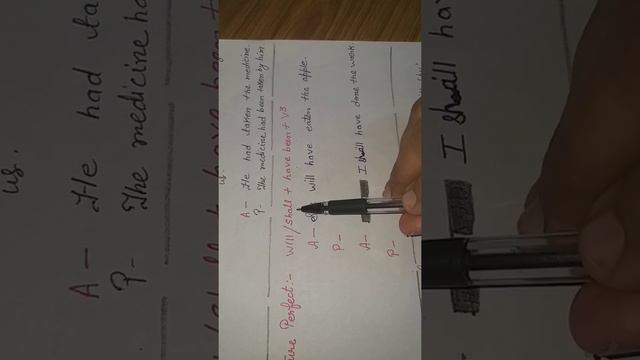 us.
A- He had taken the medicine.
P- The medicine had been taken by him
Perfect:- Will/Shall + have been + V3
A- will have eaten the apple.
P-
A- I shall have done the work.
P-